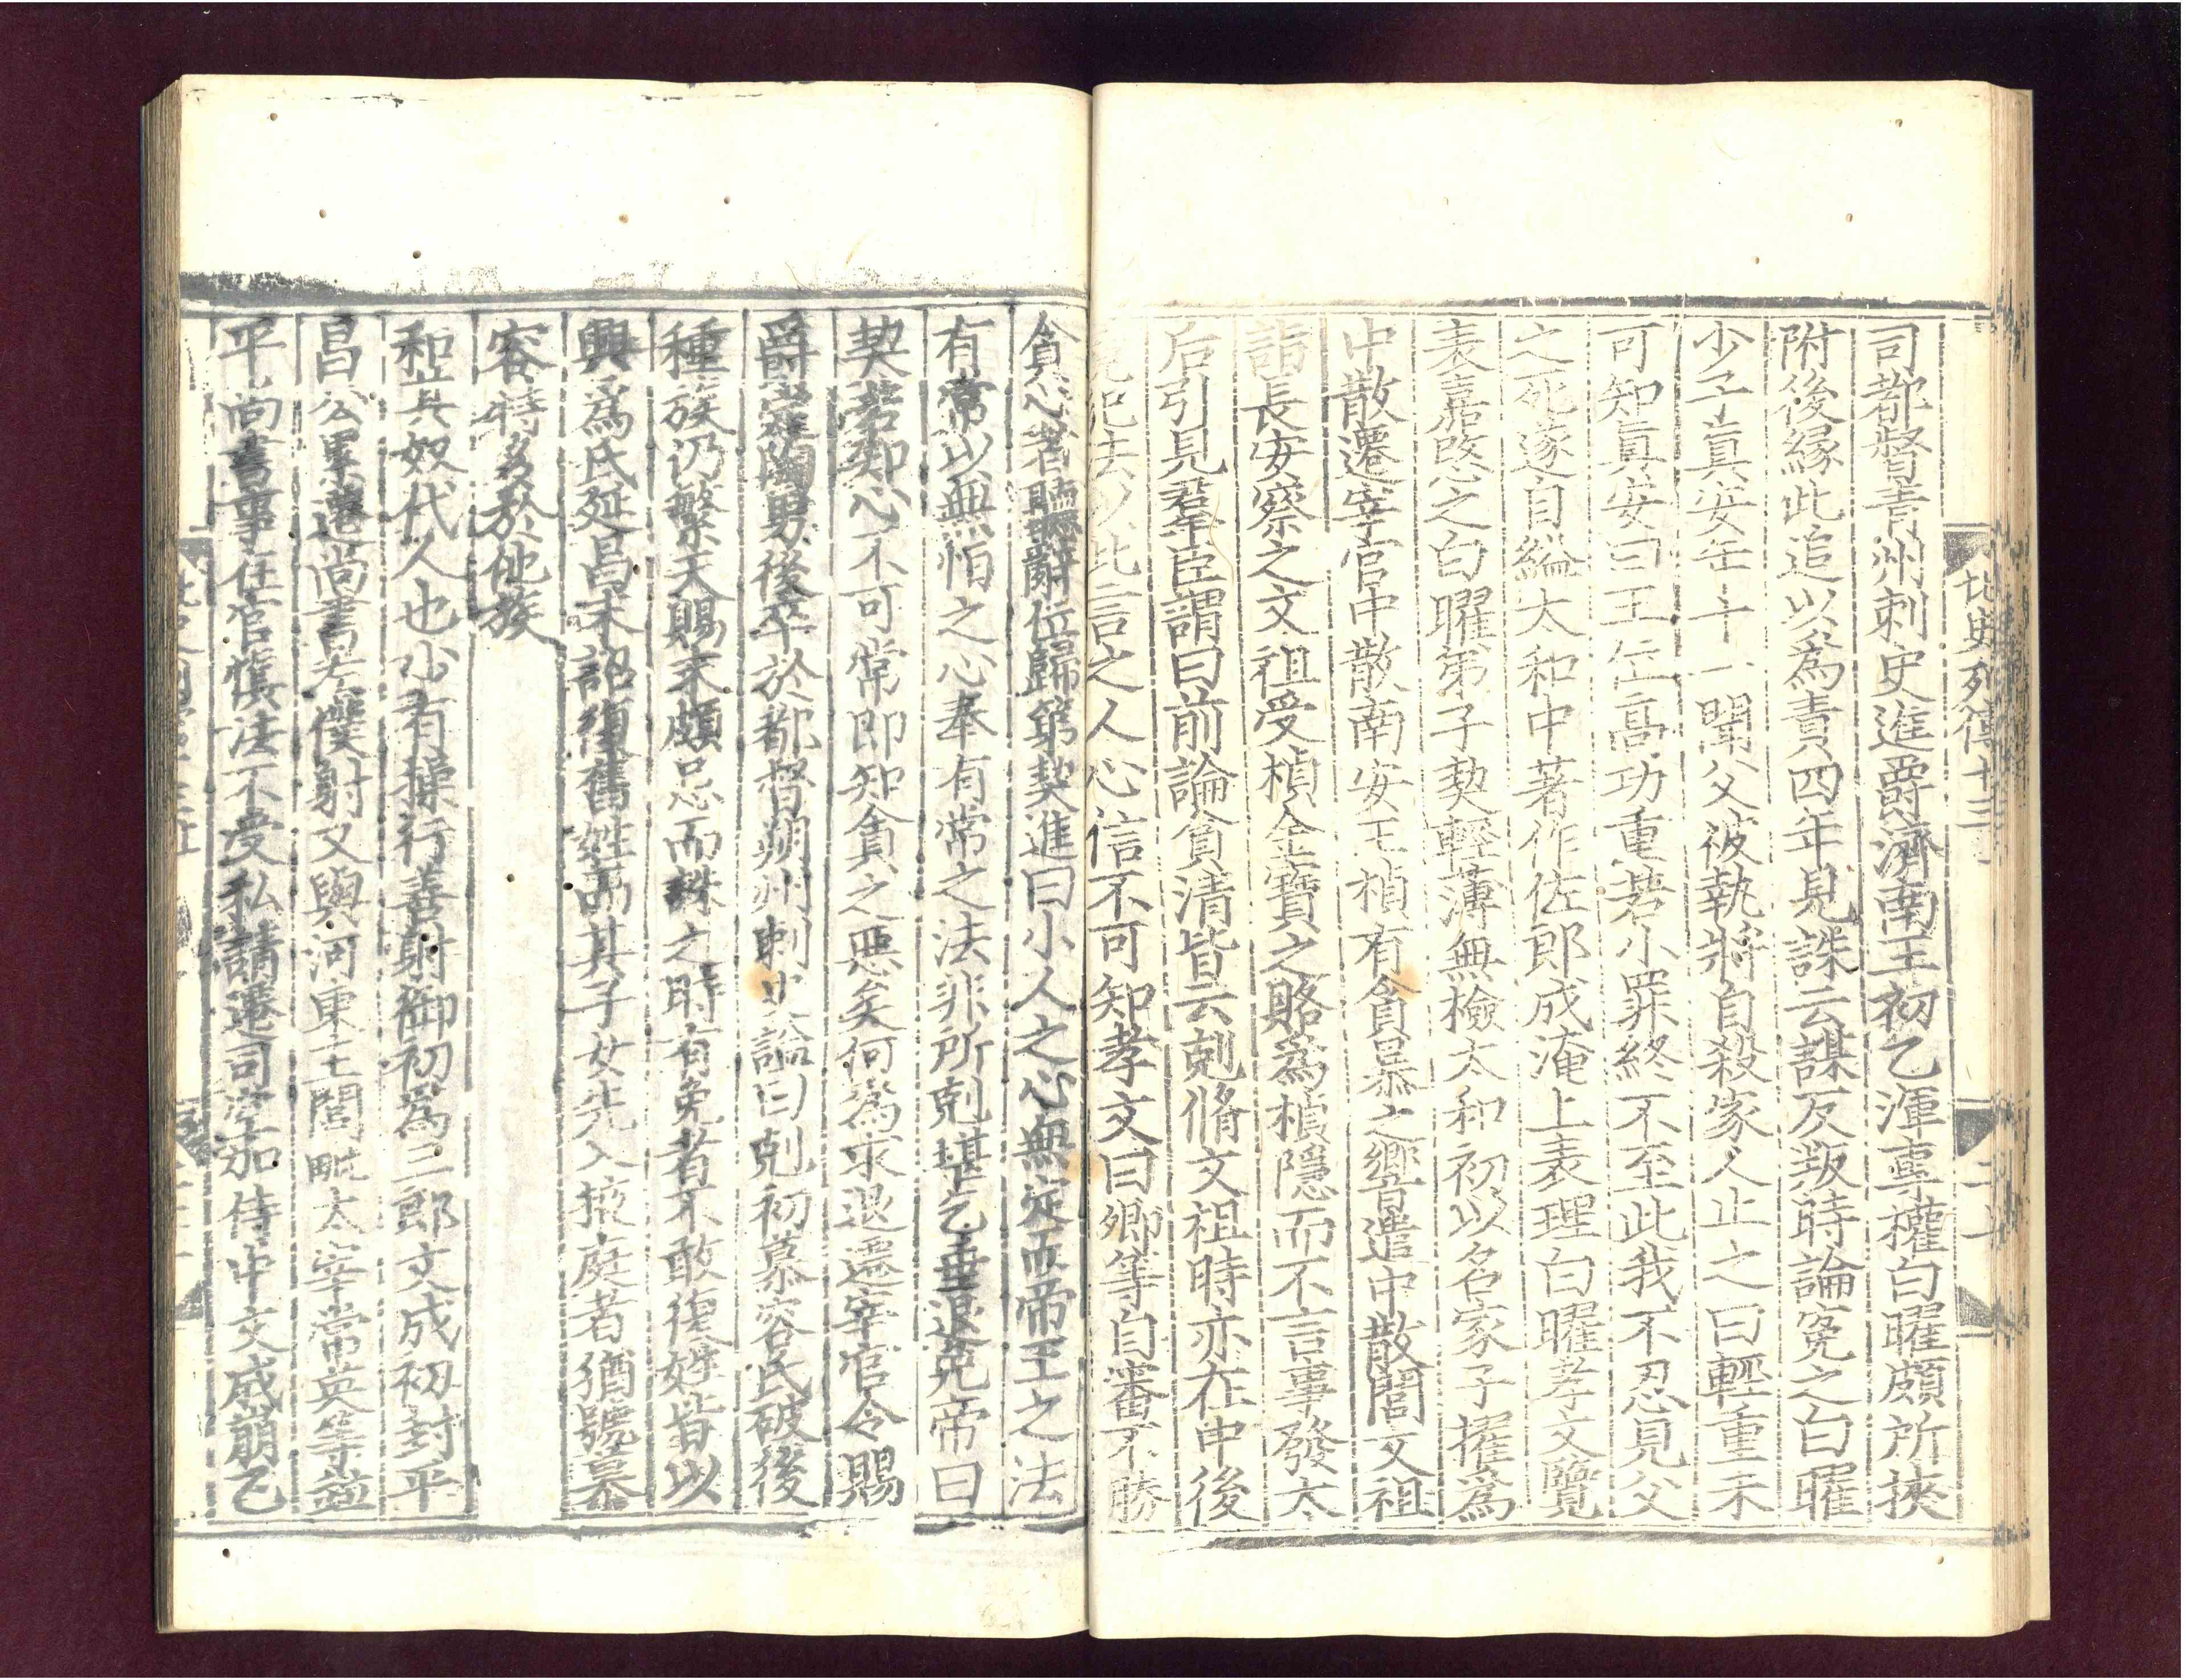 北史列傳十三
二十
司都督青州刺史進爵濟南王初乙渾專權白曜頗所挾
附後緣此追以爲責四年見誅云謀反叛時論寃之白曜
少子眞安年十一聞父被執將自殺家人止之曰輕重未
可知眞安曰王位高功重若小罪終不至此我不忍見父
之死遂自縊太和中著作佐郎成淹上表理白曜孝文覽
表嘉愍之白曜弟子契輕薄無檢太和初以名家子擢爲
中散遷宰官中散南安王楨有貪暴之響遣中散閭文祖
詣長安察之文祖受楨金寶之賂爲楨隱而不言事發太
后引見羣臣謂曰前論貪清皆云剋脩文祖時亦在中後
犯法以此言之人心信不可知孝文曰卿等自審不勝
貪心者聽辭位歸第契進曰小人之心無定而帝王之法
有常以無恒之心奉有常之法非所剋堪乞垂退免帝曰
契若知心不可常即知貪之惡矣何爲求退遷宰官令賜
爵定陶男後卒於都督朔州刺史謚曰剋初慕容氏破後
種族仍繁天賜末頗忌而誅之時有免者不敢復姓皆以
輿爲氏延昌末詔復舊姓而其子女先入掖庭者猶號慕
容特多於他族
和其奴代人也少有操行善射御初爲三郎文成初封平
昌公累遷尚書左僕射又與河東王閭毗太宰常英等並
平尚書事在官愼法不受私請遷司空加侍中文成崩乙